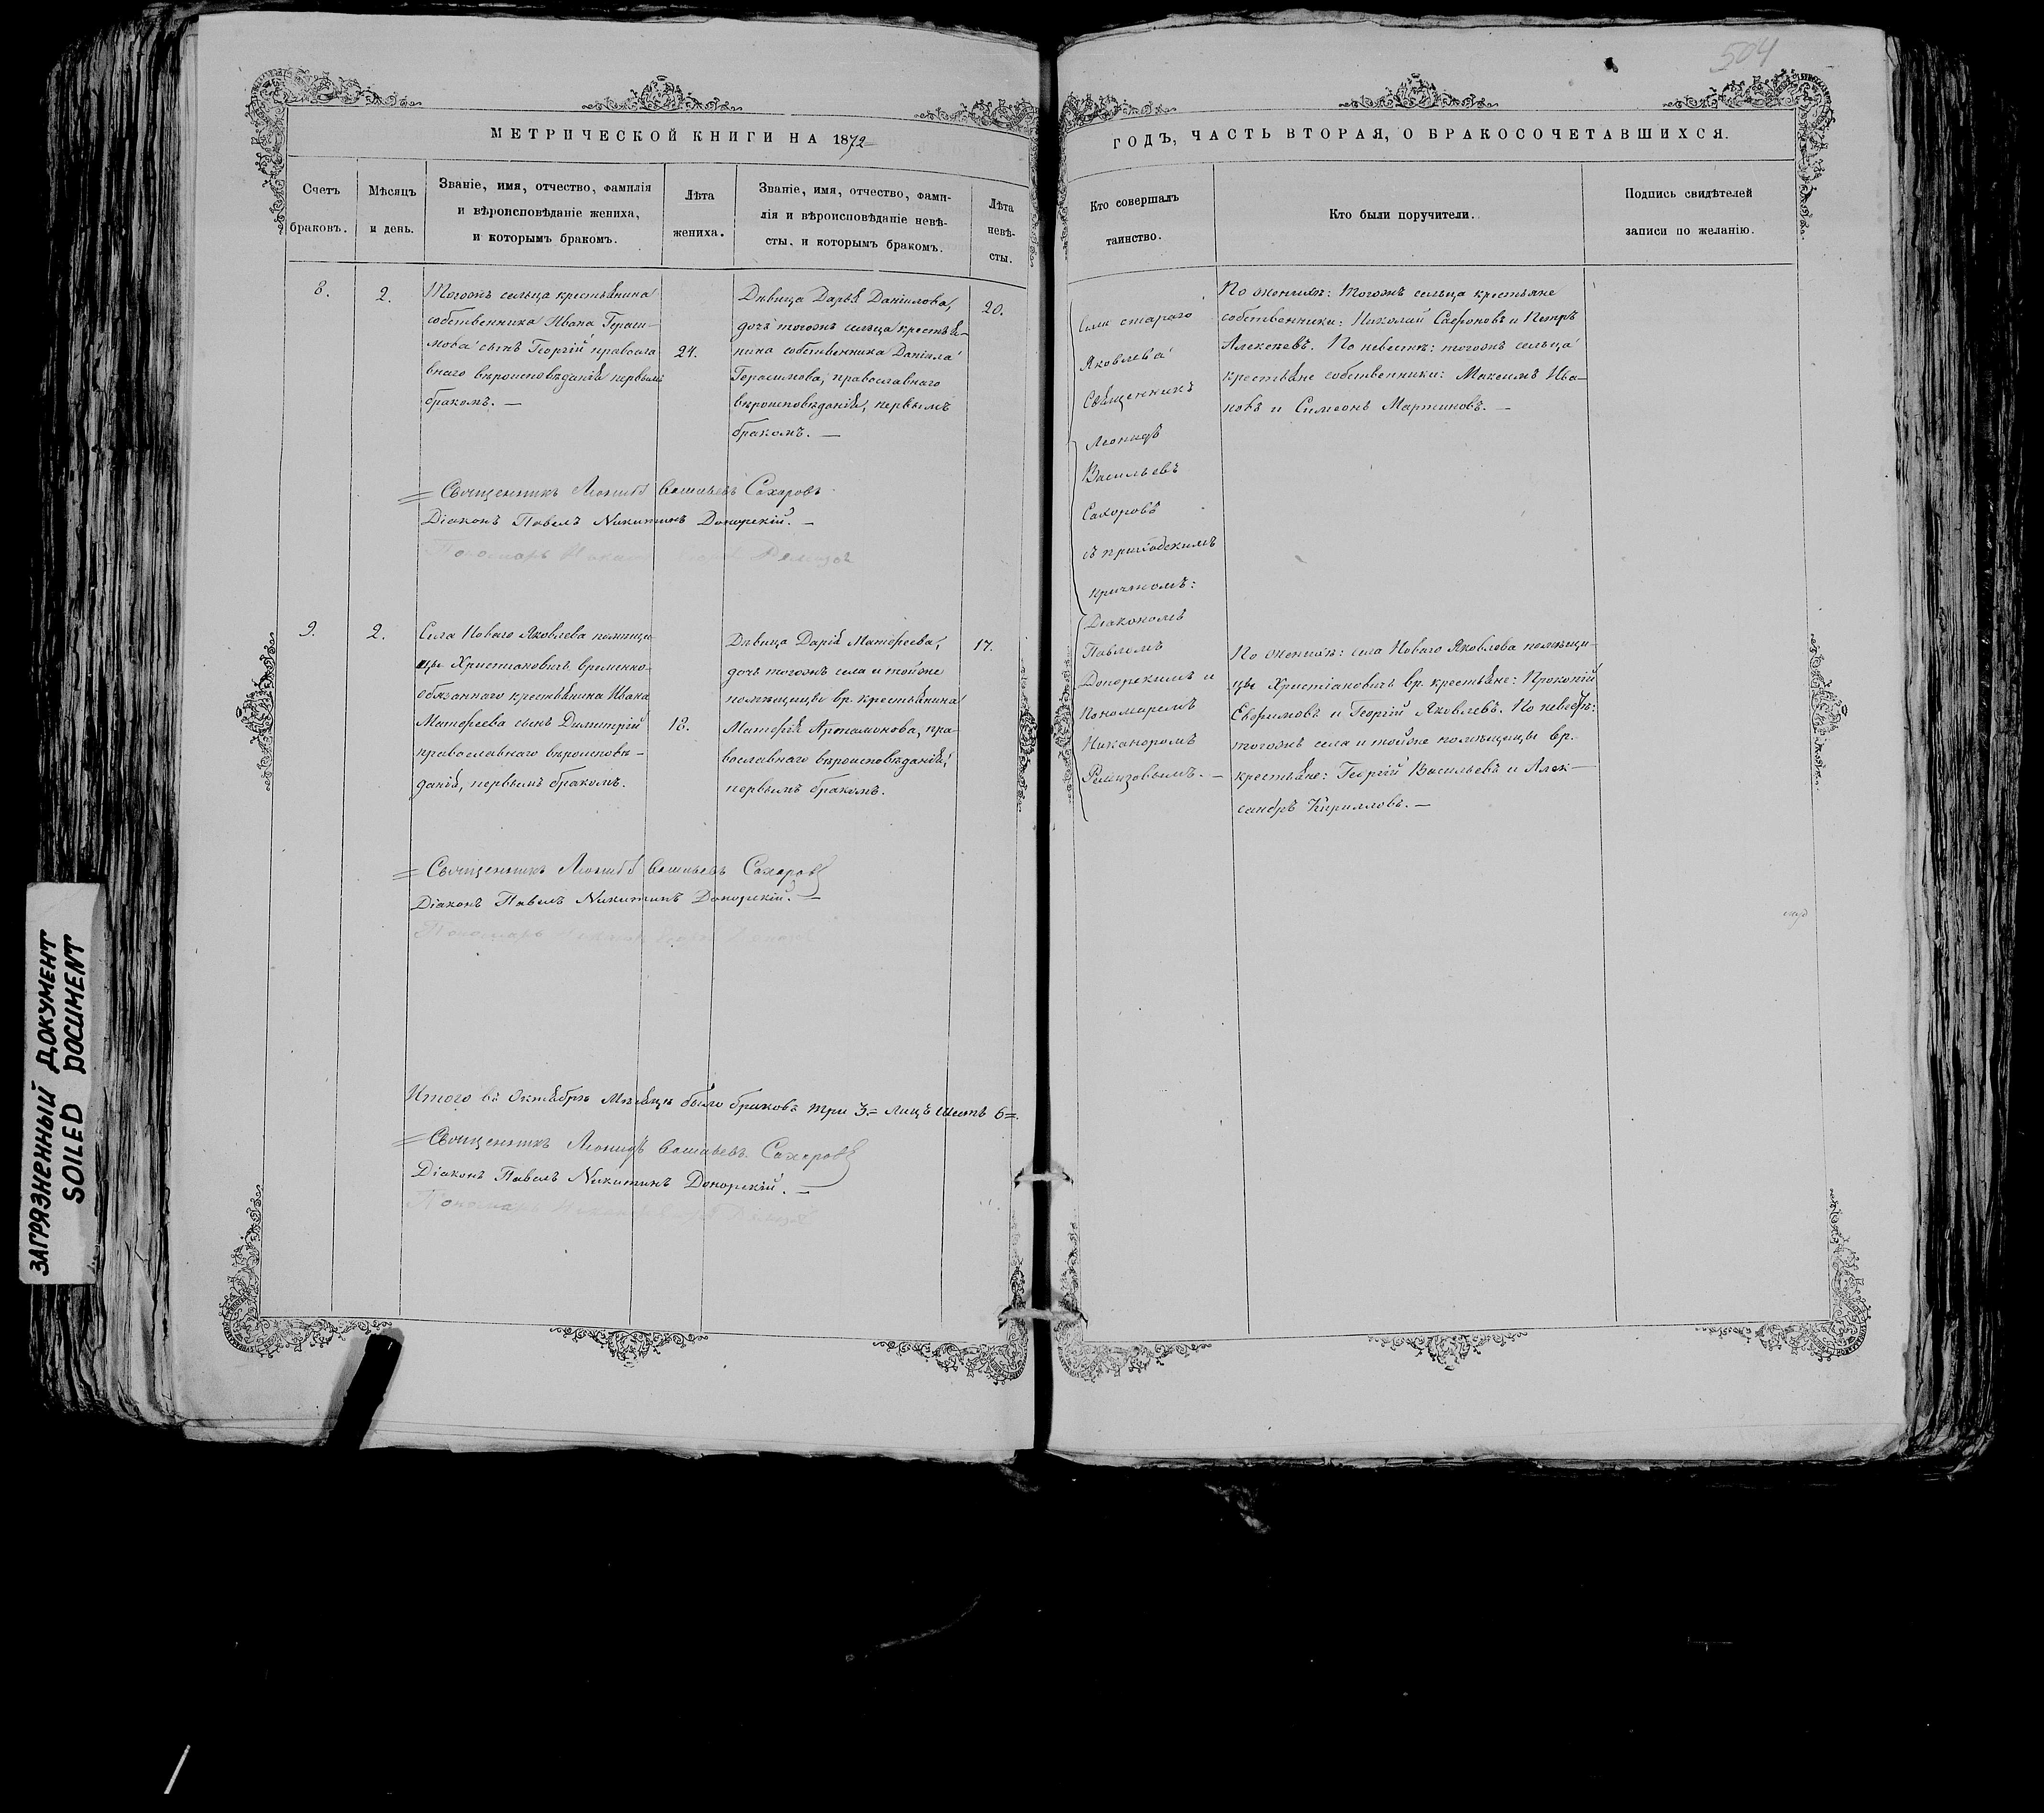 504
МЕТРИЧЕСКОЙ КНИГИ НА 1872
ГОДЪ, ЧАСТЬ ВТОРАЯ, О БРАКОСОЧЕТАВШИХСЯ.
Счетъ
браковъ.
Мѣсяцъ
и день.
Званіе, имя, отчество, фамилія
и вѣроисповѣданіе жениха,
и которымъ бракомъ.
Лѣта
жениха.
Званіе, имя, отчество, фами-
лія и вѣроисповѣданіе невѣ-
сты, и которымъ бракомъ.
Лѣта
невѣ-
сты.
Кто совершалъ
таинство.
Кто были поручители.
Подпись свидѣтелей
записи по желанію.
8.
2.
Тогожъ сельца крестьянина
собственника Ивана Гераси-
мова сынъ Георгій правосла
внаго вѣроисповѣданія первымъ
бракомъ. —
24.
Дѣвица Дарья Даніилова,
дочь тогожъ сельца крестья-
нина собственника Даніила
Герасимова, православнаго
вѣроисповѣданія, первымъ
бракомъ. —
20.
Села стараго
Яковлева
Священникъ
Леонидъ
Васильевъ
Сахаровъ
съ приходскимъ
причтомъ:
Діакономъ
Павломъ
Донорскимъ и
Пономаремъ
Никаноромъ
Ремизовымъ. —
По женихѣ: Тогожъ сельца крестьяне
собственники: Николай Сафоновъ и Петръ
Алексѣевъ. По невестѣ: тогожъ сельца
крестьяне собственники: Максимъ Ива-
новъ и Симеонъ Мартиновъ. —
= Священникъ Леонидъ Васильевъ Сахаровъ
Діаконъ Павелъ Никитинъ Донорскій. —
Пономарь Ремизовъ
9.
2.
Села Новаго Яковлева помѣщи-
цы Христіановичъ временно-
обязаннаго крестьянина Ивана
Матфеева сынъ Димитрій
православнаго вѣроисповѣ-
данія, первымъ бракомъ.
18.
Дѣвица Дарія Матфеева,
дочь тогожъ села и тойже
помѣщицы вр. крестьянина
Матфія Артамонова, пра-
вославнаго вѣроисповѣданія,
первымъ бракомъ.
17.
По женихѣ: села Новаго Яковлева помѣщи-
цы Христіановичъ вр. крестьяне: Прокопій
Евфимовъ и Георгій Яковлевъ. По невѣстѣ:
тогожъ села и тойже помѣщицы вр.
крестьяне: Георгій Васильевъ и Алек-
сандръ Кирилловъ. —
= Священникъ Леонидъ Васильевъ Сахаровъ
Діаконъ Павелъ Никитинъ Донорскій. —
Пономарь
Итого въ Октябрѣ Мѣсяцѣ было браковъ три 3 = лицъ шесть 6 =.
= Священникъ Леонидъ Васильевъ Сахаровъ
Діаконъ Павелъ Никитинъ Донорскій. —
Пономарь
ЗАГРЯЗНЕННЫЙ ДОКУМЕНТ
SOILED DOCUMENT